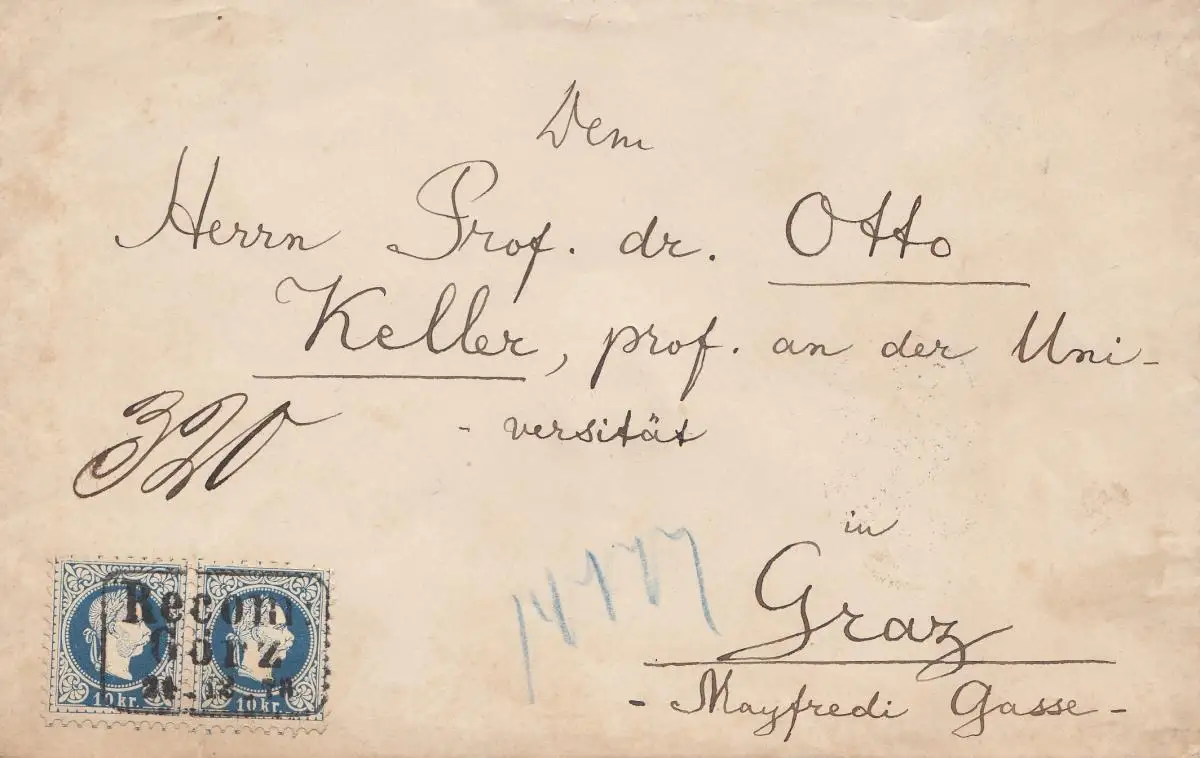 Dem
Herrn Prof. dr. Otto
Keller, prof. an der Uni-
-versität
320
in
Graz
- Mayfredi Gasse -
Recom
Görz
10 kr. 10 kr.